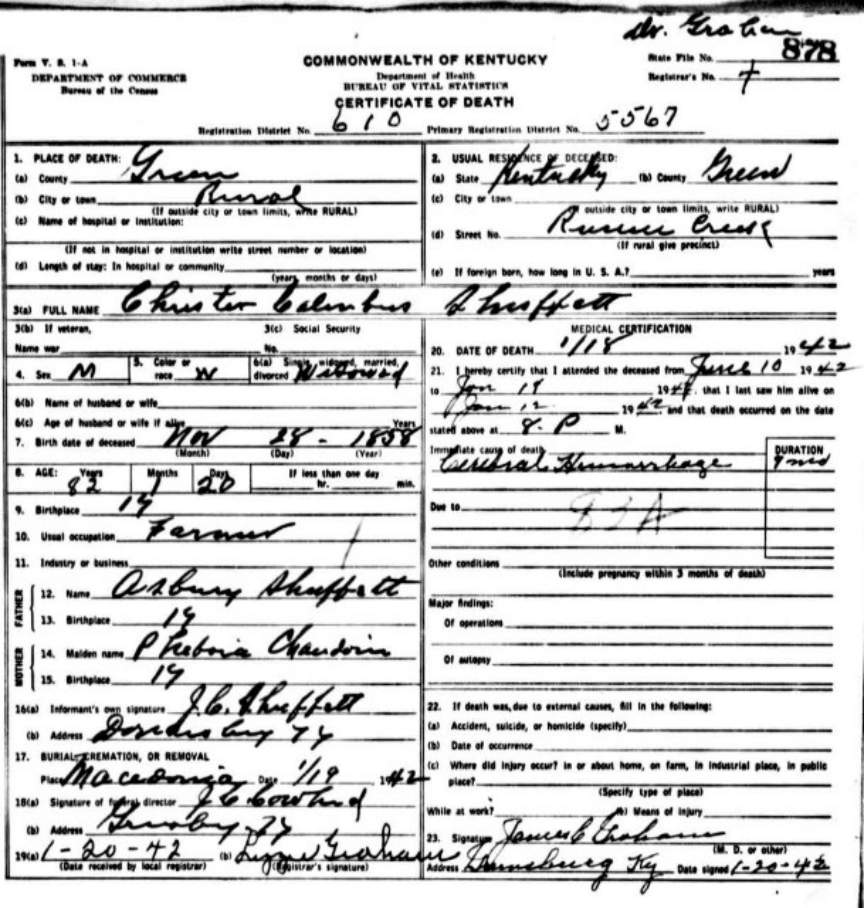 Dr. Graham
878
Form V. S. 1-A
DEPARTMENT OF COMMERCE
Bureau of the Census
COMMONWEALTH OF KENTUCKY
Department of Health
BUREAU OF VITAL STATISTICS
CERTIFICATE OF DEATH
State File No.
Registrar's No.
Registration District No. 610 Primary Registration District No. 5567
1. PLACE OF DEATH:
(a) County Green
(b) City or town Rural
(If outside city or town limits, write RURAL)
(c) Name of hospital or institution:
(If not in hospital or institution write street number or location)
(d) Length of stay: In hospital or community
(years, months or days)
2. USUAL RESIDENCE OF DECEASED:
(a) State Kentucky (b) County Green
(c) City or town
outside city or town limits, write RURAL)
(d) Street No. Creek
(If rural give precinct)
(e) If foreign born, how long in U. S. A.? years
3(a) FULL NAME Christer Columbus Shuffett
3(b) If veteran,
Name war
3(c) Social Security
No.
4. Sex M
5. Color or race W
6(a) Single, widowed, married, divorced
6(b) Name of husband or wife
6(c) Age of husband or wife if alive Years
7. Birth date of deceased Nov 28 - 1858
(Month) (Day) (Year)
8. AGE: Years Months Days If less than one day
82 1 20 hr. min.
9. Birthplace Ky
10. Usual occupation Farmer
11. Industry or business
FATHER
12. Name Asbury Shuffett
13. Birthplace Ky
MOTHER
14. Maiden name Chaudoin
15. Birthplace Ky
16(a) Informant's own signature J. C. Shuffett
(b) Address Ky
17. BURIAL, CREMATION, OR REMOVAL
Place Macedonia Date 1/19 1942
18(a) Signature of funeral director J C Cowherd
(b) Address Ky
19(a) 1-20-42 (b) Lizzie Graham
(Date received by local registrar) (Registrar's signature)
MEDICAL CERTIFICATION
20. DATE OF DEATH 1/18 1942
21. I hereby certify that I attended the deceased from June 10 1942
to Jan 1942, that I last saw him alive on
Jan 12 1942 and that death occurred on the date
stated above at 8. P M.
Immediate cause of death
Cerebral Hemorrhage
DURATION
Due to
83A
Other conditions
(Include pregnancy within 3 months of death)
Major findings:
Of operations
Of autopsy
22. If death was due to external causes, fill in the following:
(a) Accident, suicide, or homicide (specify)
(b) Date of occurrence
(c) Where did injury occur? in or about home, on farm, in industrial place, in public
place?
(Specify type of place)
While at work? (e) Means of injury
23. Signature James C Graham
(M. D. or other)
Address Ky Date signed 1-20-42